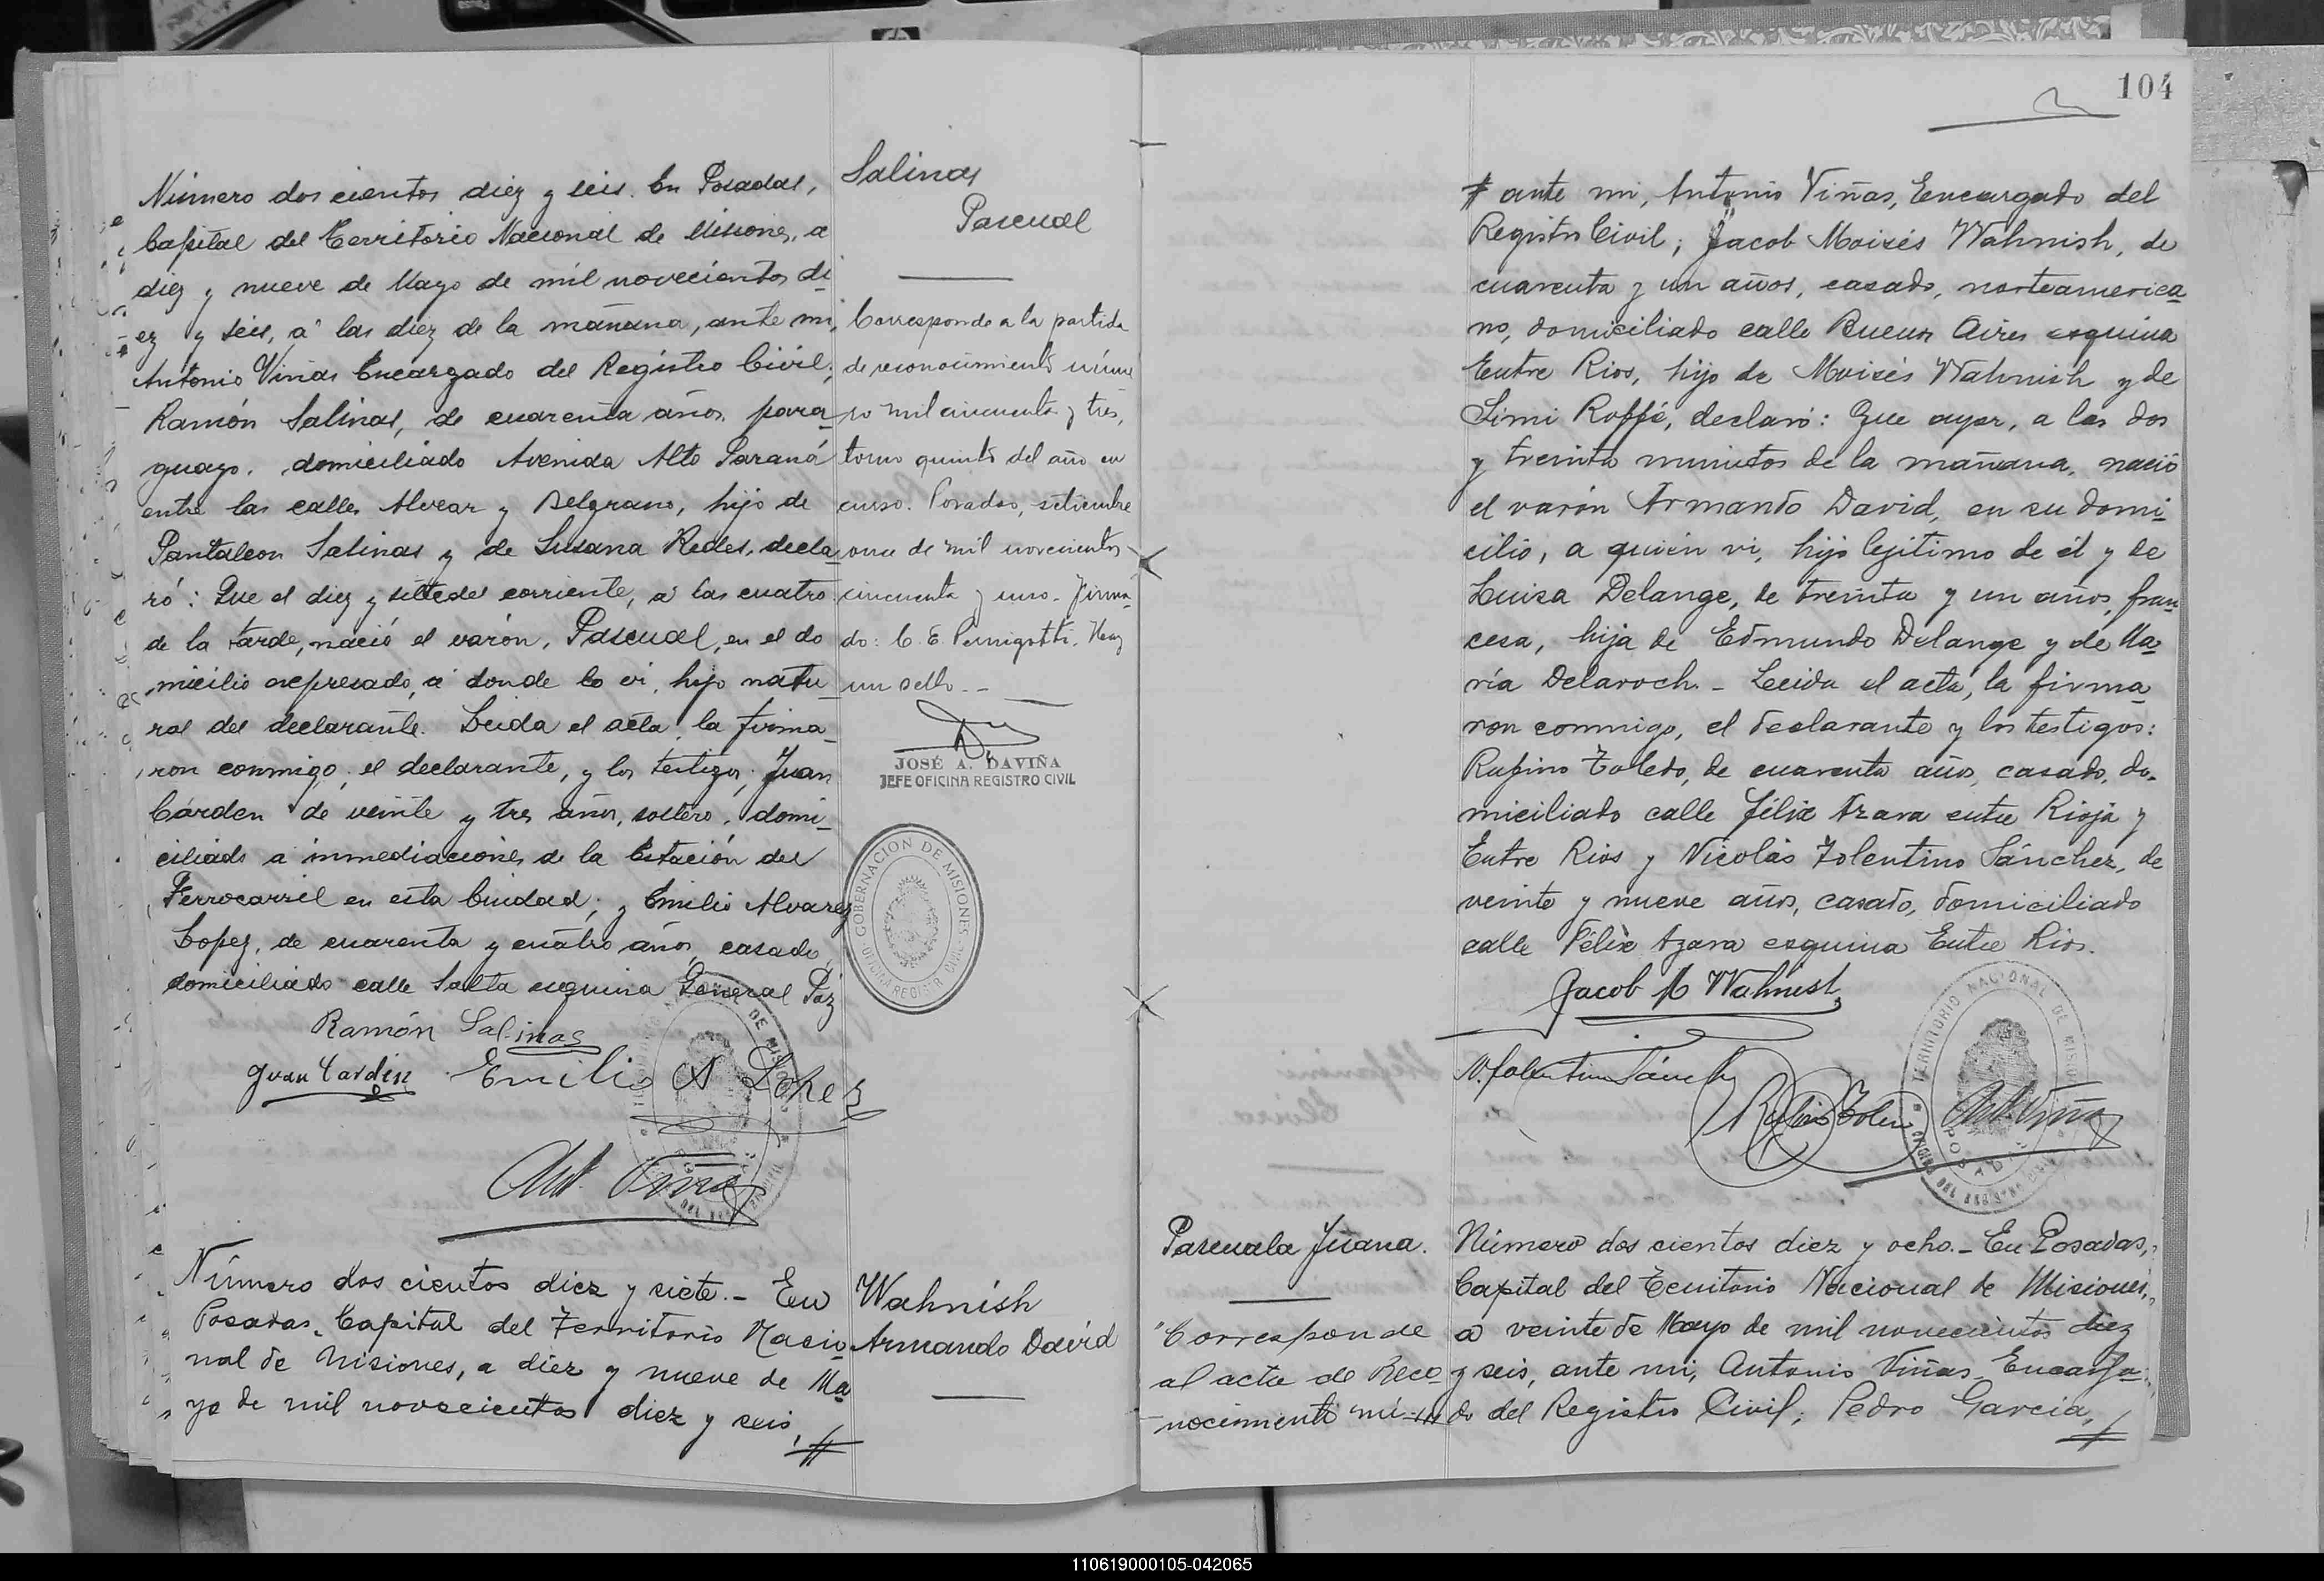 Número dos cientos diez y seis. En Posadas,
Capital del Territorio Nacional de Misiones, a
diez y nueve de Mayo de mil novecientos di
ez y seis, a las diez de la mañana, ante mi,
Antonio Viñas Encargado del Registro Civil;
Ramón Salinas, de cuarenta años, para
guayo, domiciliado Avenida Alto Paraná
entre las calles Alvear y Belgrano, hijo de
Pantaleon Salinas y de Susana Redes, decla
ró: Que el diez y siete del corriente, a las cuatro
de la tarde, nació el varón, Pascual, en el do
micilio expresado, a donde lo vi, hijo natu
ral del declarante. Leida el acta, la firma
ron conmigo, el declarante, y los testigos; Juan
Cárden de veinte y tres años, soltero, domi
ciliado a inmediaciones de la Estación del
Ferrocarril en esta Ciudad; y Emilio Alvarez
Lopez, de cuarenta y cuatro años, casado,
domiciliado calle Salta esquina General Paz
Ramón Salinas
Juan Carden Emilio A Lopez
Ant. Viñas
Salinas
Pascual
Corresponde a la partida
de reconocimiento núme
ro mil cincuenta y tres,
tomo quinto del año en
curso. Posadas, setiembre
once de mil novecientos
cincuenta y uno. Firma
do: C. E. Pernigotti. Hay
un sello.
JOSÉ A. DAVIÑA
JEFE OFICINA REGISTRO CIVIL
GOBERNACION DE MISIONES
OFICINA REGISTRO CIVIL
Número dos cientos diez y siete.- En
Posadas, Capital del Territorio Nacio
nal de Misiones, a diez y nueve de Ma
yo de mil novecientos diez y seis, #
Wahnish
Armando David
104
# ante mi, Antonio Viñas, Eencargado del
Registro Civil; Jacob Moisés Wahnish, de
cuarenta y un años, casado, norteamerica
no, domiciliado calle Buenos Aires esquina
Entre Rios, hijo de Moisés Wahnish y de
Simi Roffé, declaró: Que ayer, a las dos
y treinta minutos de la mañana, nació
el varón Armando David, en su domi
cilio, a quién vi, hijo legitimo de él y de
Luisa Delange, de treinta y un años, fran
cesa, hija de Edmundo Delange y de Ma
ría Delaroch.- Leida el acta, la firma
ron conmigo, el declarante y los testigos:
Rufino Toledo, de cuarenta años, casado, do-
miciliado calle Félix Azara entre Rioja y
Entre Rios y Nicolás Tolentino Sánchez, de
veinte y nueve años, casado, domiciliado
calle Félix Azara esquina Entre Rios.
Jacob M Wahnish
N. Tolentino Sánchez
Rufino Toledo Ant. Viñas
TERRITORIO NACIONAL DE MISIONES
POSADAS
Pascuala Juana.
"Corresponde
al acta de Reco
nocimiento nú
Número dos cientos diez y ocho.- En Posadas,
Capital del Territorio Nacional de Misiones,
a veinte de Mayo de mil novecientos diez
y seis, ante mi, Antonio Viñas, Encarga
do del Registro Civil; Pedro Garcia, #
110619000105-042065